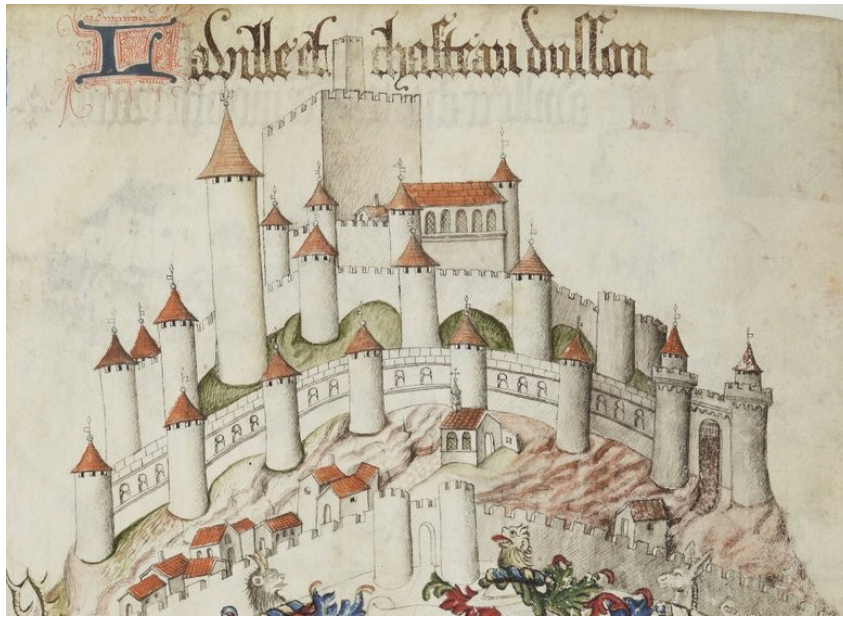 La ville et chasteau dusson